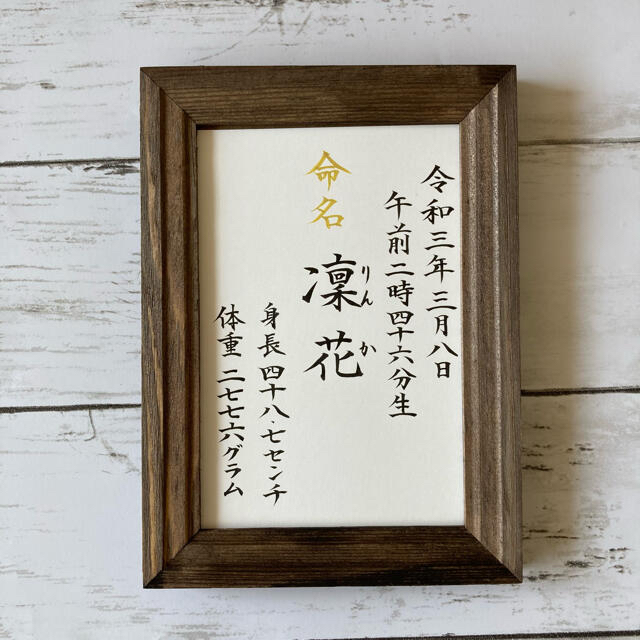 令和三年三月八日
午前二時四十六分生
命名
凜花
りんか
身長四十八.七センチ
体重 二七七六グラム